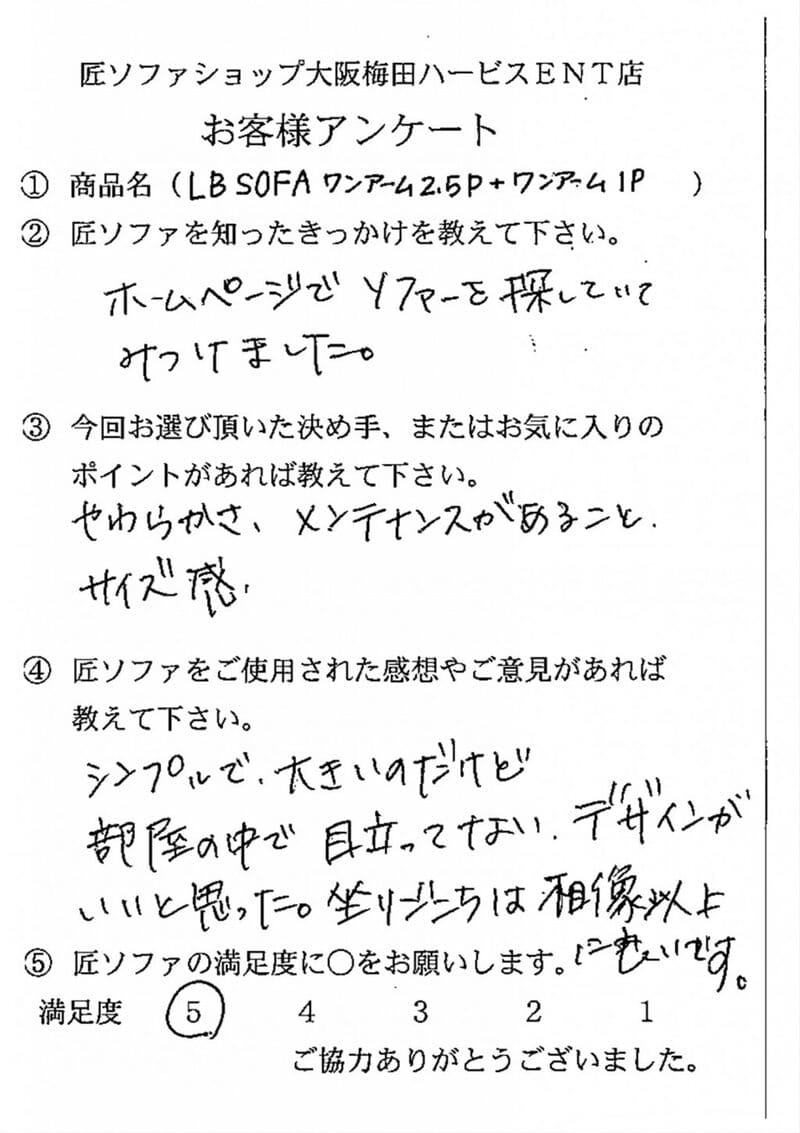 匠ソファショップ大阪梅田ハービスＥＮＴ店
お客様アンケート
① 商品名（LB SOFA ワンアーム2.5P+ワンアーム1P ）
② 匠ソファを知ったきっかけを教えて下さい。
ホームページでソファーを探していて
みつけました。
③ 今回お選び頂いた決め手、またはお気に入りの
ポイントがあれば教えて下さい。
やわらかさ、メンテナンスがあること.
サイズ感.
④ 匠ソファをご使用された感想やご意見があれば
教えて下さい。
シンプルで、大きいのだけど
部屋の中で目立ってない.デザインが
いいと思った。坐りごこちは想像以上
に良いです。
⑤ 匠ソファの満足度に○をお願いします。
満足度 5 4 3 2 1
ご協力ありがとうございました。